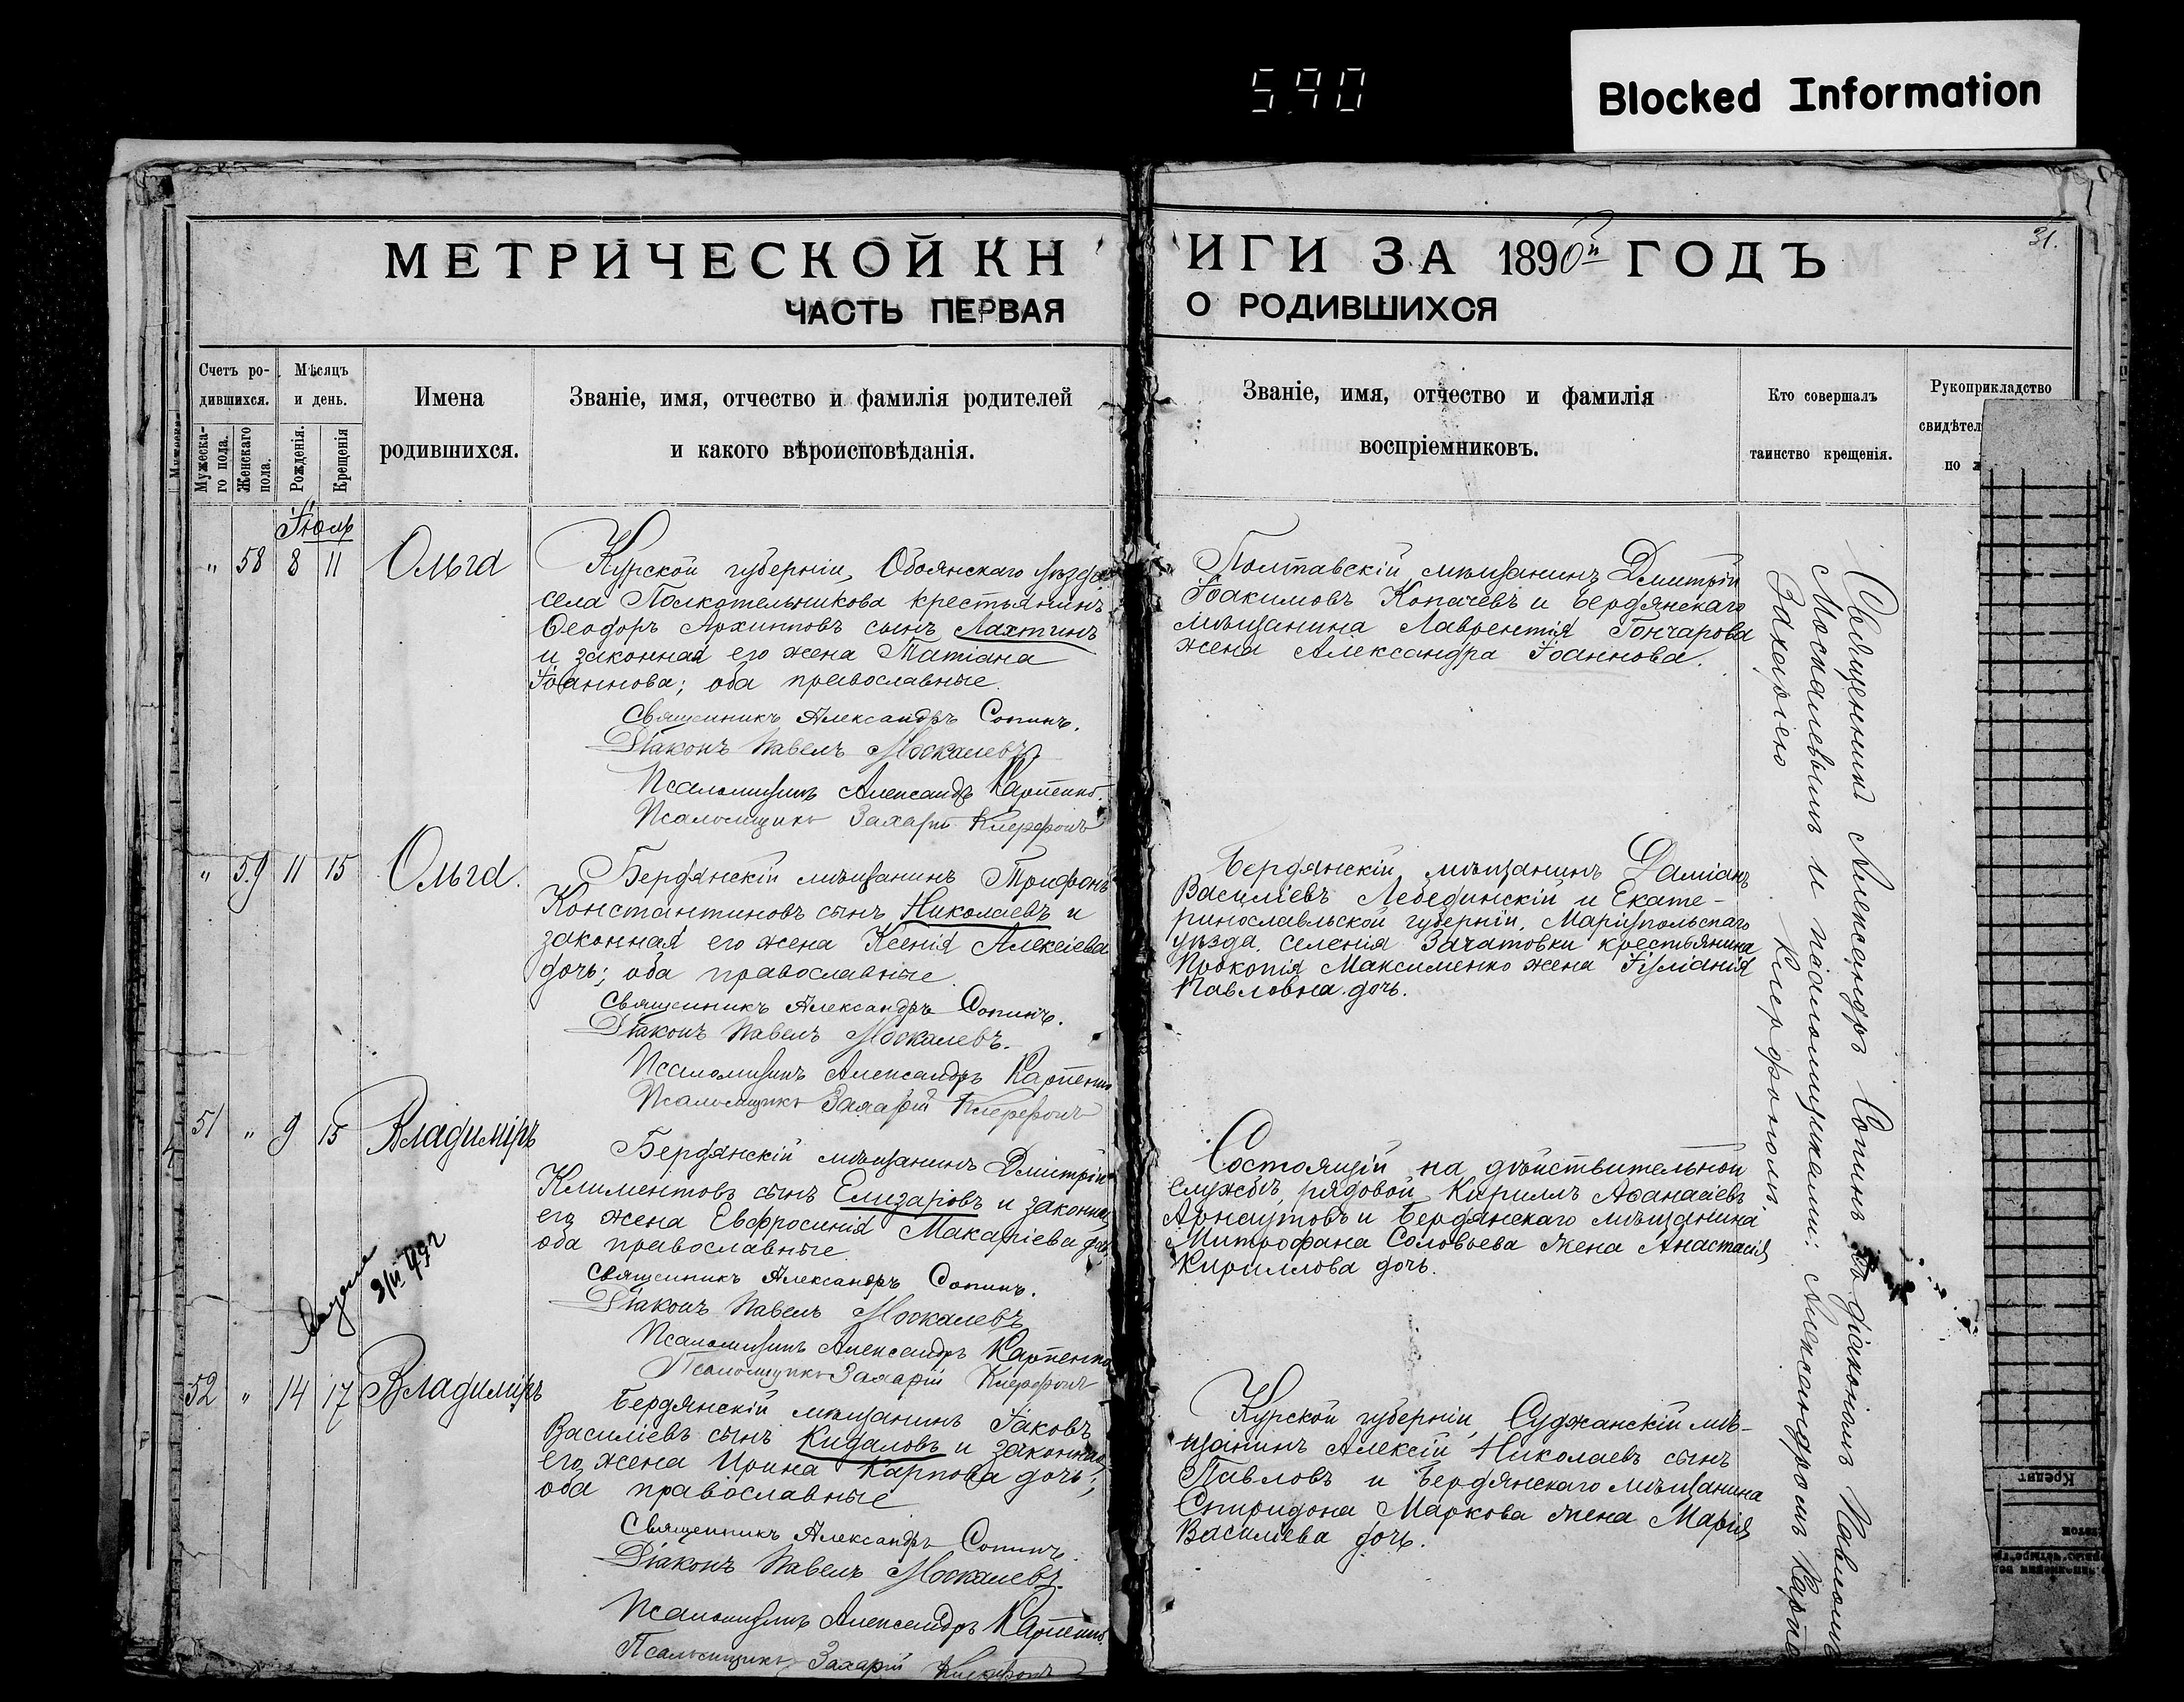 590
Blocked Information
31.
МЕТРИЧЕСКОЙ КНИГИ ЗА 1890й ГОДЪ
ЧАСТЬ ПЕРВАЯ О РОДИВШИХСЯ
Счетъ родившихся.
Мужескаго пола.
Женскаго пола.
Мѣсяцъ и день.
Рожденія.
Крещенія
Имена
родившихся.
Званіе, имя, отчество и фамилія родителей
и какого вѣроисповѣданія.
Званіе, имя, отчество и фамилія
воспріемниковъ.
Кто совершалъ
таинство крещенія.
Рукоприкладство
свидѣтел
по
Іюль
" 58 8 11 Ольга
Курской губерніи, Обоянскаго уѣзда
села Полкотельникова крестьянинъ
Ѳеодоръ Архиповъ сынъ Лахтинъ
и законная его жена Татіана
Іоаннова; оба православные.
Священникъ Александръ Сопинъ.
Діаконъ Павелъ Москалевъ
Псаломщикъ Александръ Карпенко.
Псаломщикъ Захарій
Полтавскій мѣщанинъ Дмитрій
Іоакимовъ Копачевъ и Бердянскаго
мѣщанина Лаврентія Гончарова
жена Александра Іоаннова.
" 59 11 15 Ольга.
Бердянскій мѣщанинъ Трифонъ
Константиновъ сынъ Николаевъ и
законная его жена Ксенія Алексіева
дочь; оба православные.
Священникъ Александръ Сопинъ.
Діаконъ Павелъ Москалевъ.
Псаломщикъ Александръ Карпенко
Псаломщикъ Захарій
Бердянскій мѣщанинъ Даміанъ
Василіевъ Лебединскій и Екате-
ринославльской губерніи, Маріупольскаго
уѣзда, селенія Зачатовки крестьянина
Прокопія Максименко жена Іуліанія
Павловна дочь.
51 " 9 15 Владиміръ
Бердянскій мѣщанинъ Дмитрій
Климентовъ сынъ Елизаровъ и законная
его жена Евфросинія Макаріева дочь
оба православные.
Священникъ Александръ Сопинъ.
Діаконъ Павелъ Москалевъ
Псаломщикъ Александръ Карпенко
Псаломщикъ Захарій
Состоящій на дѣйствительной
службѣ, рядовой Кириллъ Аѳанасіевъ
Арнаутовъ и Бердянскаго мѣщанина
Митрофана Соловьева жена Анастасія
Кириллова дочь.
52 " 14 17 Владиміръ
Бердянскій мѣщанинъ Іаковъ
Василіевъ сынъ Кидаловъ и законная
его жена Ирина Карпова дочь;
оба православные
Священникъ Александръ Сопинъ.
Діаконъ Павелъ Москалевъ.
Псаломщикъ Александръ Карпенко.
Псаломщикъ Захарій
Курской губерніи, Суджанскій мѣ-
щанинъ Алексій Николаевъ сынъ
Павловъ и Бердянскаго мѣщанина
Спиридона Маркова жена Марія
Василіева дочь.
Священникъ Александръ Сопинъ съ діакономъ Павломъ
Москалевымъ и псаломщиками: Александромъ Карпе
Захаріею
Кредит